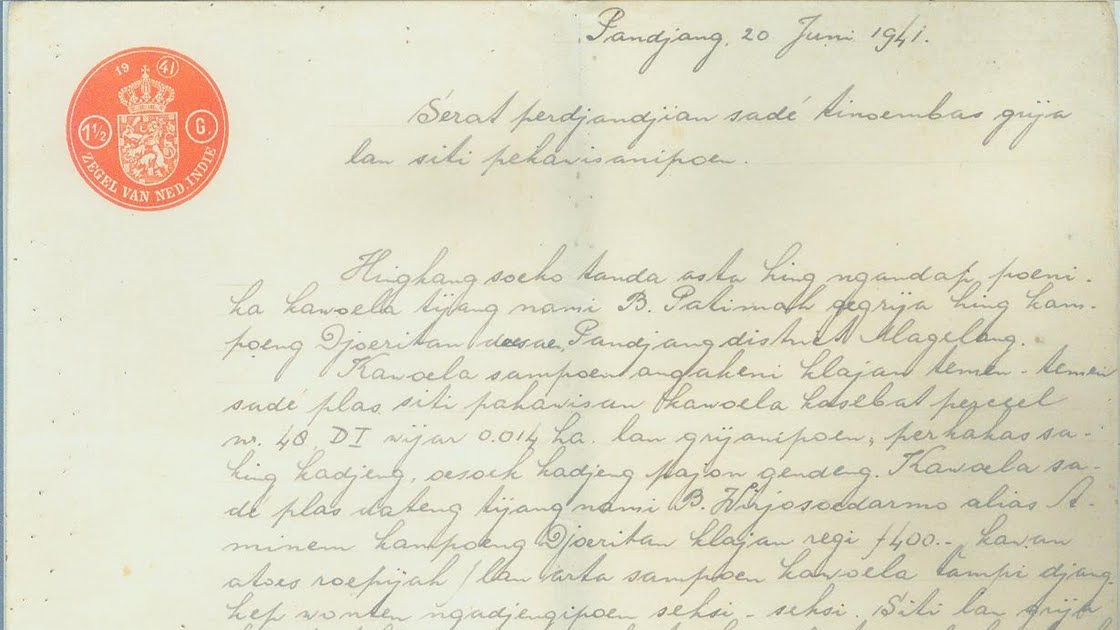 Pandjang, 20 Juni 1941.
19 41
1½ G.
ZEGEL VAN NED. INDIE
Serat perdjandjian sadé tinoembas grija
lan siti pekawisanipoen.
Hingkang soeko tanda asta hing ngandap poeni-
ka kawoela tijang nami B. Patimah gegrija hing kam-
poeng Djoeritan desa Pandjang district Magelang.
Kawoela sampoen angakeni klajan temen-temen
sadé plas siti pakawisan kawoela kasebat perceel
nr. 48 DI wijar 0.014 ha. lan grijanipoen, perkakas sa-
king kadjeng, oesoek kadjeng pajon gendeng. Kawoela sa-
de plas dateng tijang nami B. Wirjosoedarmo alias A-
minem kampoeng Djoeritan klajan regi f 400.- kawan
atoes roepijah / lan arta sampoen kawoela tampi djang-
kep wonten ngadjengipoen seksi-seksi. Siti lan grija